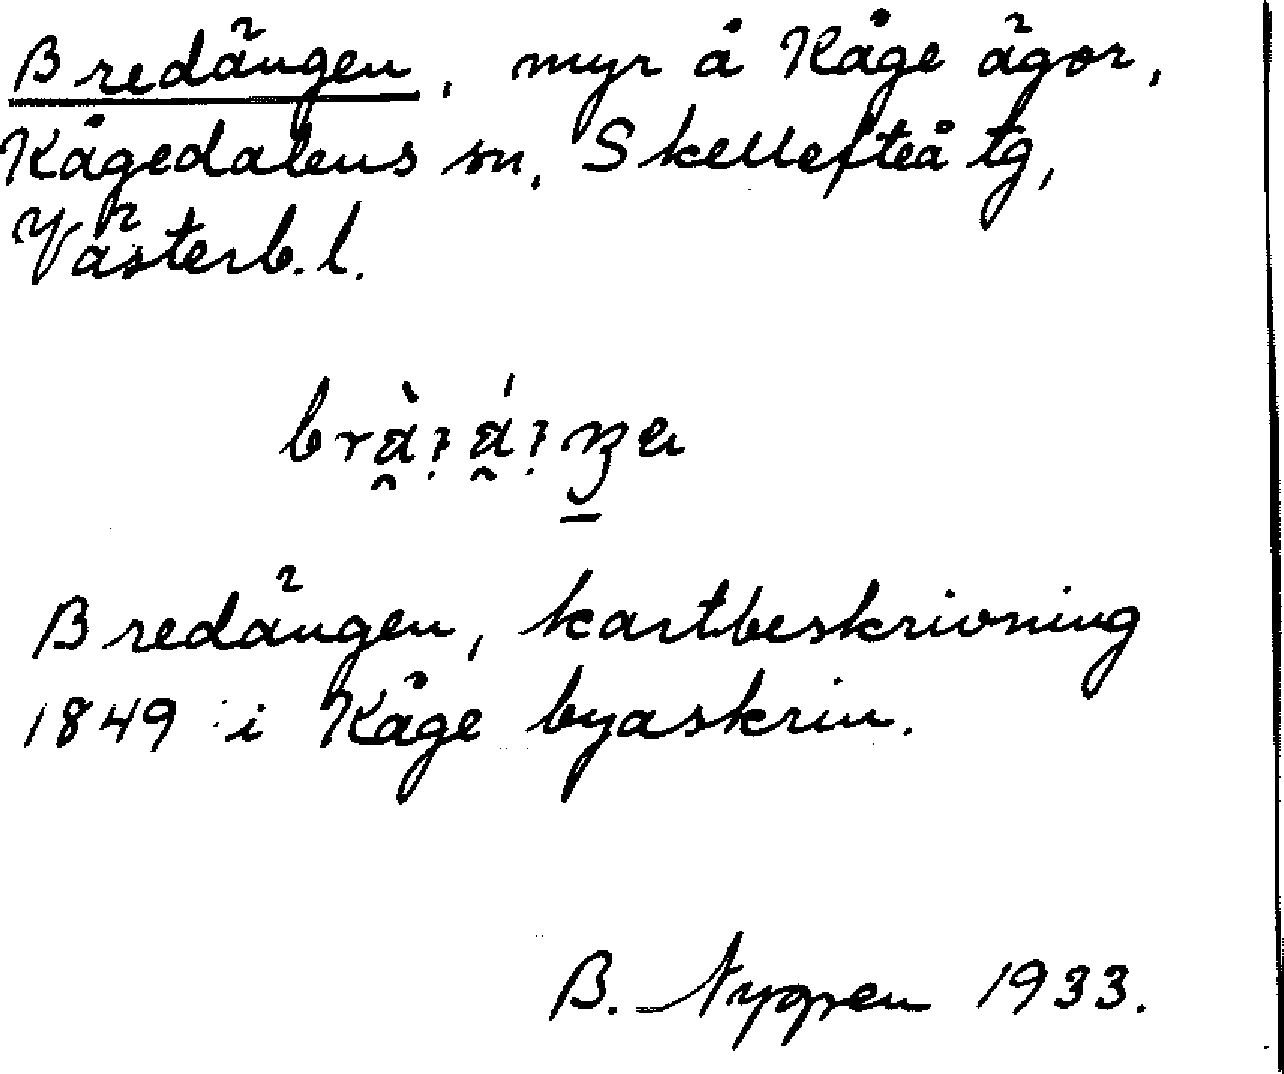 Bredängen, myr å Kåge ägor,
Kågedalens sn, Skellefteå tg,
Västerb. l.
Bredängen, kartbeskrivning
1849 i Kåge byaskrin.
B. Nygren 1933.